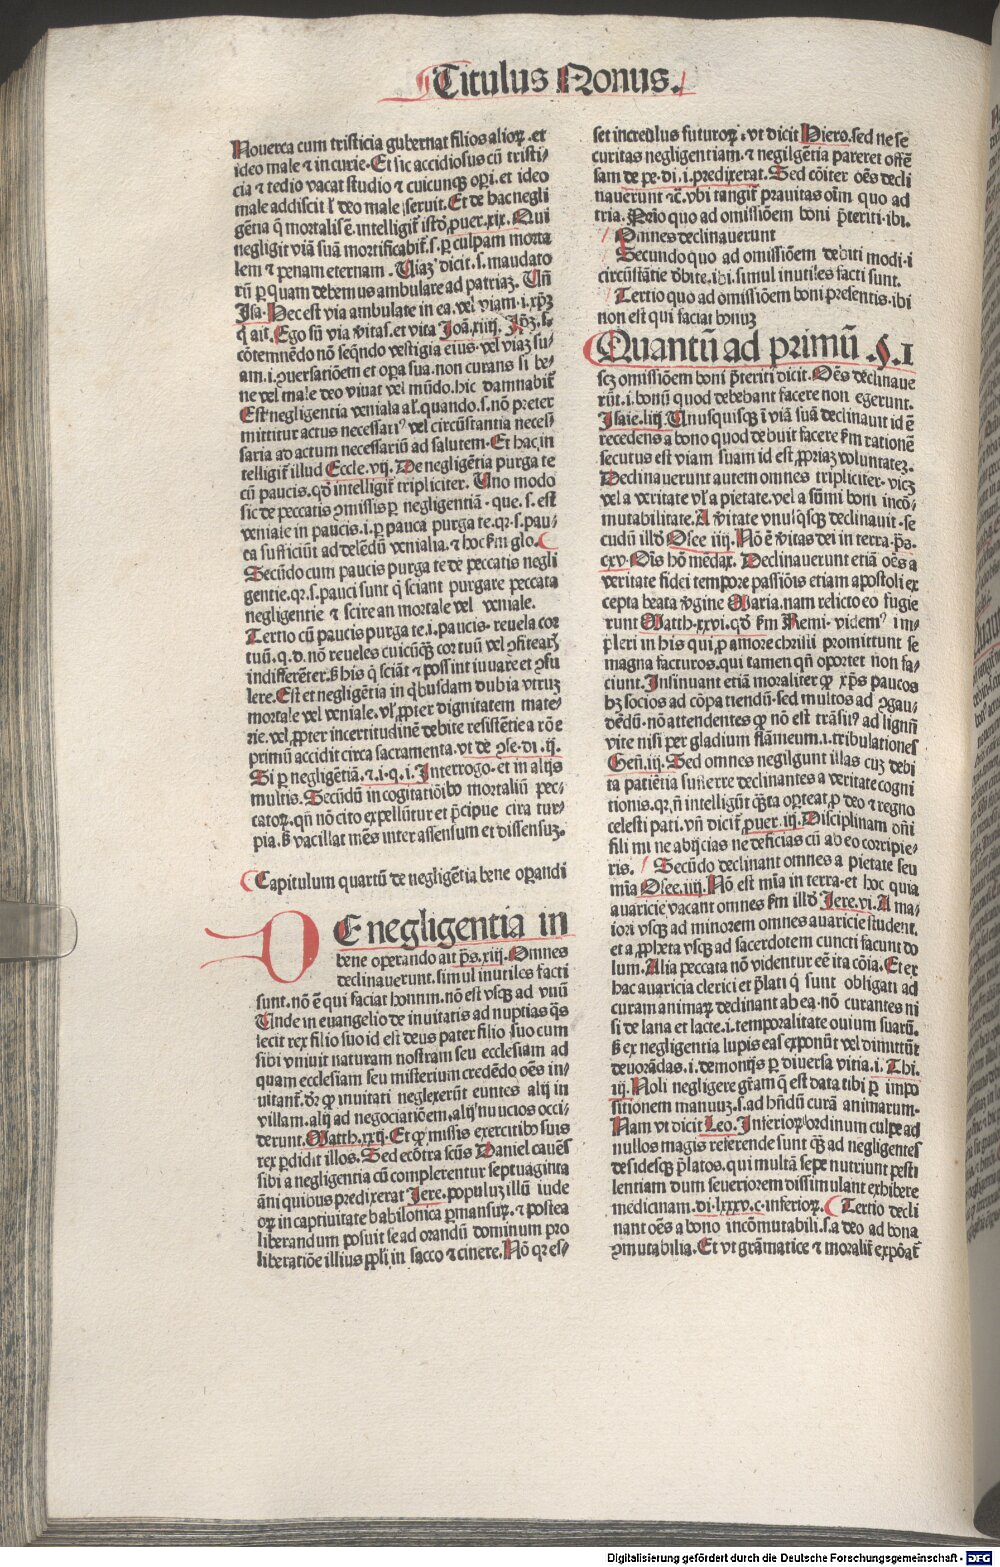 Titulus Nonus.
Nouerca cum tristicia gubernat filios alioꝝ.et
ideo male ⁊ iniurie.Et sic accidiosus cū tristi⸗
cia ⁊ tedio vacat studio ⁊ cuicunqꝫ oꝑi.et ideo
male addiscit ł deo male seruit.Et de hac negli
gētia q̄ mortalis ē.intelligit᷑ istd̄ ꝓuer.xix.Qui
negligit viā suā mortificabit᷑.s.ꝑ culpam morta
lem ⁊ penam eternam.Uiaꝫ dicit.s.mandato
rū ꝑ quam debemus ambulare ad patriaꝫ.Un̄
Isa.Hec est via ambulate in ea.vel viam.i.xp̄ꝫ
q̄ ait.Ego sū via v̄itas.et vita Joā.xiiij.xp̄ꝫ.s.
cōtemnēdo nō seq̄ndo vestigia eius.vel viaꝫ su⸗
am.i.ꝯuersatiōem et oꝑa sua.non curans si be⸗
ne vel male deo viuat vel mūdo.hic damnabit᷑
Est negligentia venialis aɫ quando.s.nō preter
mittitur actus necessariꝰ vel circūstantia neces⸗
saria ad actum necessariū ad salutem.Et hac in
telligit᷑ illud Eccle.vij.De negligētia purga te
cū paucis.qd̄ intelligit᷑ tripliciter.Uno modo
sic de peccatis ꝯmissis ꝑ negligentiā.que.s.est
veniale in paucis.i.ꝑ pauca purga te.qꝛ.s.pau⸗
ca sufficiūt ad delēdū venialia.⁊ hoc ẜm glo.
Secūdo cum paucis purga te de peccatis negli
gentie.qꝛ.s.pauci sunt q̄ sciant purgare peccata
negligentie ⁊ scire an mortale vel veniale.
Tertio cū paucis purga te.i.paucis.reuela cor
tuū.q.d.nō reueles cuicūqꝫ cor tuū vel ꝯfitearꝫ
indifferēter.ꝫ his q̄ sciāt ⁊ possint iuuare et ꝯsu
lere.Est et negligētia in q̄busdam dubia vtruꝫ
mortale vel veniale.vɫ ꝓpter dignitatem mate⸗
rie.vel ꝓpter incertitudinē debite resistētie a rōe
primū accidit circa sacramenta.vt de ꝯse.di.ij.
Si ꝑ negligētiā.⁊.i.q.i.Interrogo.et in alijs
multis.Secūdū in cogitatiōibꝰ mortaliū pec⸗
catoꝝ.qn̄ nō cito expellūtur et p̄cipue cira tur⸗
pia.ꝫ vacillat mēs inter assensum et dissensuꝫ.
Capitulum quartū de negligētia bene oꝑandi
DE negligentia in
bene operando ait ps̄.xiij.Omnes
declinauerunt.simul inutiles facti
sunt.nō ē qui faciat honnm.nō est vsqꝫ ad vnū
Unde in euangelio de inuitatis ad nuptias q̄s
fecit rex filio suo id est deus pater filio suo cum
sibi vniuit naturam nostram seu ecclesiam ad
quam ecclesiam seu misterium credēdo oēs in⸗
uitant᷑.dr̄ ꝙ inuitati neglexerūt euntes alij in
villam.alij ad negociatiōem.alij nuucios occi⸗
derunt.Matth.xxij.Et ꝙ missis exercitibꝰ suis
rex ꝑdidit illos.Sed ecōtra scūs Daniel cauēs
sibi a negligentia cū complerentur septuaginta
āni quibus predixerat Jere.populuꝫ illū iude
oꝝ in captiuitate babilonica ꝑmansuꝝ.⁊ postea
liberandum posuit se ad orandū dominum pro
liberatiōe illius ppl̄i in sacco ⁊ cinere.Nō qꝛ es⸗
set incredulus futuroꝝ.vt dicit Hiero.sed ne se
curitas negligentiam.⁊ negilgētia pareret offē
sam de pe.di.i.predixerat.Sed cōiter oēs decli
nauerunt ⁊c̄.vbi tangit᷑ prauitas oīm quo ad
tria.Prīo quo ad omissiōem boni p̄teriti.ibi.
Omnes declinauerunt
Secundo quo ad omissiōem debiti modi.i
circūstātie dbite.ibi.simul inutiles facti sunt.
Tertio quo ad omissiōem boni presentis.ibi
non est qui faciat bonuꝫ
Quantū ad primū .§.1
scꝫ omissiōem boni p̄teriti dicit.Oēs declinaue
rūt.i.bonū quod debebant facere non egerunt.
Isaie.liij.Unusquisqꝫ ī viā suā declinauit id ē
recedens a bono quod debuit facere ẜm rationē
secutus est viam suam id est ꝓpriaꝫ voluntateꝫ.
Declinauerunt autem omnes tripliciter.vicꝫ
vel a veritate vɫ a pietate.vel a sūmi boni incō⸗
mutabilitate.A v̄itate vnusqsqꝫ declinauit.se
cudū illd̄ Osee iiij.Nō ē v̄itas dei in terra.ps̄.
cxv.Oīs hō mēdax.Declinauerunt etiā oēs a
veritate fidei tempore passiōis etiam apostoli ex
cepta beata v̄gine Maria.nam relicto eo fugie
runt Matth.xxvi.qd̄ ẜm Remi.videmꝰ im⸗
pleri in his qui ꝓ amore christi promittunt se
magna facturos.qui tamen qn̄ oportet non fa⸗
ciunt.Insinuant etiā moraliter ꝙ xp̄s paucos
hꝫ socios ad cōpatiendū.sed multos ad ꝯgau⸗
dēdū.nō attendentes ꝙ nō est trāsitꝰ ad lignū
vite nisi per gladium flāmeum.i.tribulationes
Gen̄.iij.Sed omnes negilgunt illas cuꝫ debi
ta patiētia sufferre declinantes a veritate cogni
tionis.qꝛ n̄ intelligūt q̄ꝫta oꝑteat ꝓ deo ⁊ regno
celesti pati.vn̄ dicit᷑ ꝓuer.iij.Disciplinam dn̄i
fili mi ne abijcias ne deficias cū ab eo corripie⸗
ris. Secūdo declinant omnes a pietate seu
mīa Osee.iiij.Nō est mīa in terra.et hoc quia
auaricie vacant omnes ẜm illd̄ Jere.vi.A ma⸗
iori vsqꝫ ad minorem omnes auaricie student.
et a ꝓpheta vsqꝫ ad sacerdotem cuncti faciunt do
lum.Alia peccata nō videntur eē ita cōia.Et ex
hac auaricia clerici et p̄lati q̄ sunt obligati ad
curam animaꝝ declinant ab ea.nō curantes ni
si de lana et lacte.i.temporalitate ouium suarū.
ꝫ ex negligentia lupis eas exponūt vel dimittūt
deuorādas.i.demonijs ꝑ diuersa vitia.i.Thi.
iij.Noli negligere grām q̄ est data tibi ꝑ impo
sitionem manuuꝫ.s.ad hn̄dū curā animarum.
Nam vt dicit Leo.Inferioꝝ ordinum culpe ad
nullos magis referende sunt q̄ꝫ ad negligentes
desidesqꝫ p̄latos.qui multā sepe nutriunt pesti
lentiam dum seueriorem dissimulant exhibere
medicinam.di.lxxxv.c.inferioꝝ. Tertio decli
nant oēs a bono incōmutabili.s.a deo ad bona
ꝯmutabilia.Et vt grāmatice ⁊ moralit᷑ expōat᷑
Digitalisierung gefördert durch die Deutsche Forschungsgemeinschaft - DFG